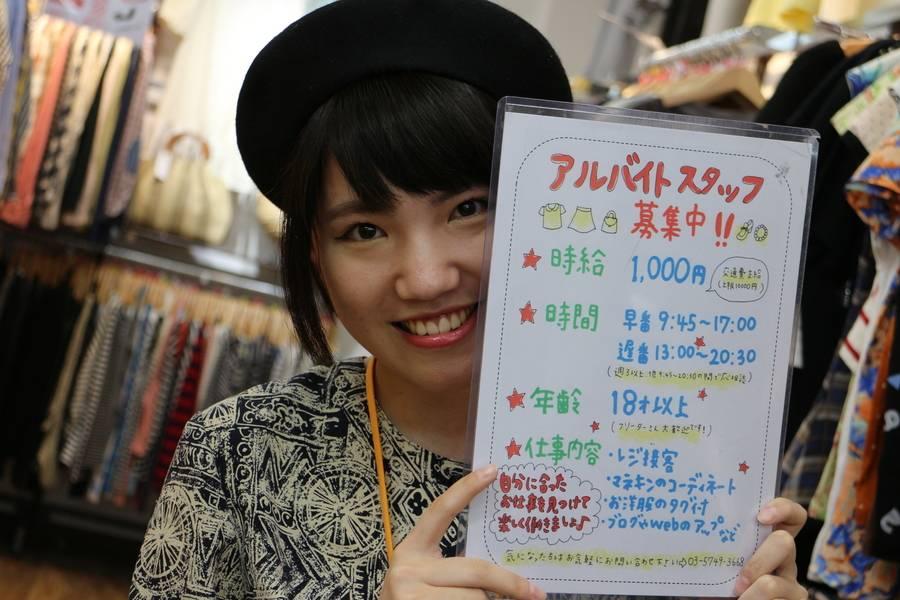 アルバイトスタッフ
募集中!!
時給 1,000円
交通費支給
(上限10000円)
時間 早番 9:45~17:00
遅番 13:00~20:30
(週3以上 他9:45~20:30の間で応相談)
年齢 18才以上
(フリーターさん大歓迎です!)
仕事内容 ・レジ接客
・マネキンのコーディネート
・お洋服のタグ付
・ブログやwebのアップなど
自分に合った
お仕事を見つけて
楽しく働きましょ♪
気になった方はお気軽にお問い合わせ下さい⇨03-5749-3668